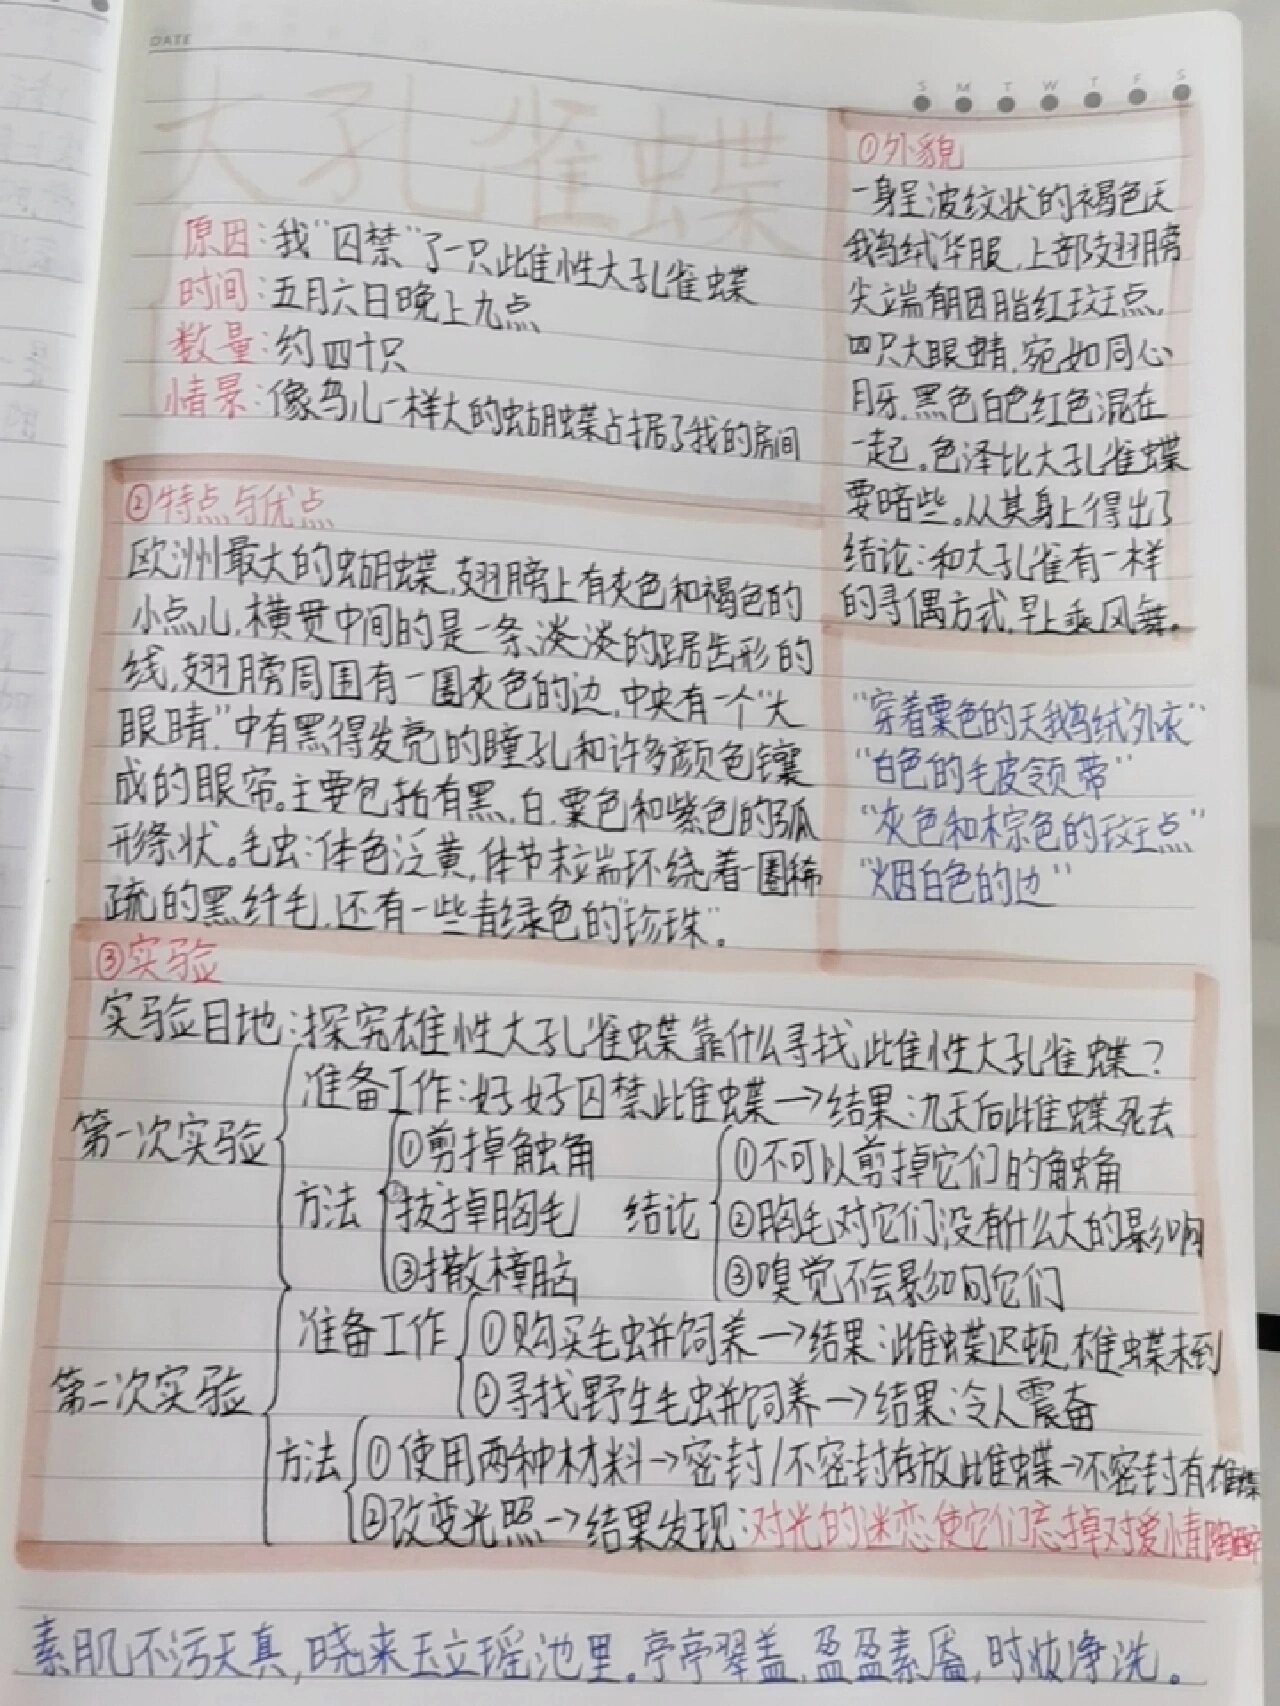 DATE
S M T W T F S
大孔雀蝶
原因:我"囚禁"了一只雌性大孔雀蝶
时间:五月六日晚上九点
数量:约四十只
情景:像鸟儿一样大的蝴蝶占据了我的房间
①外貌
一身呈波纹状的褐色天
鹅绒华服,上部翅膀
尖端有胭脂红斑点,
四只大眼睛,宛如同心
月牙,黑色白色红色混在
一起。色泽比大孔雀蝶
要暗些。从其身上得出了
结论:和大孔雀有一样
的寻偶方式,早上乘风舞。
②特点与优点
欧洲最大的蝴蝶,翅膀上有灰色和褐色的
小点儿,横贯中间的是一条淡淡的锯齿形的
线,翅膀周围有一圈灰色的边,中央有一个"大
眼睛",中有黑得发亮的瞳孔和许多颜色镶
成的眼帘。主要包括有黑,白,栗色和紫色的弧
形条状。毛虫:体色泛黄,体节末端环绕着一圈稀
疏的黑纤毛,还有一些青绿色的"珍珠"。
"穿着栗色的天鹅绒外衣"
"白色的毛皮领带"
"灰色和棕色的斑点"
"烟白色的边"
③实验
实验目地:探究雄性大孔雀蝶靠什么寻找雌性大孔雀蝶?
第一次实验
准备工作:好好囚禁雌蝶→结果:九天后雌蝶死去
方法
①剪掉触角
②拔掉胸毛
③撒樟脑
结论
①不可以剪掉它们的触角
②胸毛对它们没有什么大的影响
③嗅觉不会影响它们
第二次实验
准备工作
①购买毛虫并饲养→结果:雌蝶迟顿,雄蝶未到
②寻找野生毛虫并饲养→结果:令人震奋
方法
①使用两种材料→密封/不密封存放雌蝶→不密封有雄蝶
②改变光照→结果发现:对光的迷恋使它们忘掉对爱情陶醉
素肌不污天真,晓来玉立瑶池里。亭亭翠盖,盈盈素靥,时妆净洗。